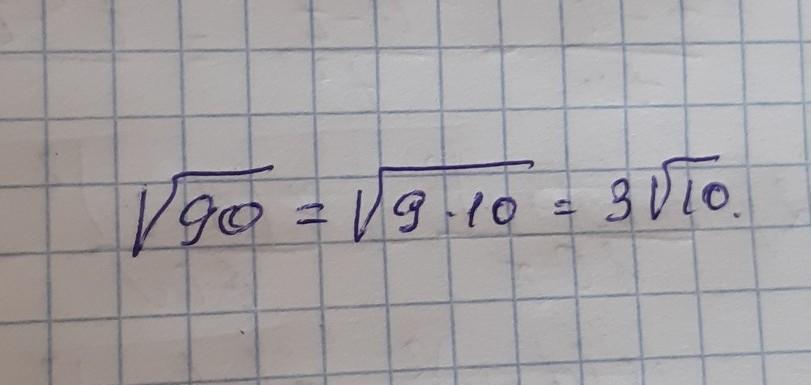 √90 = √9·10 = 3√10.